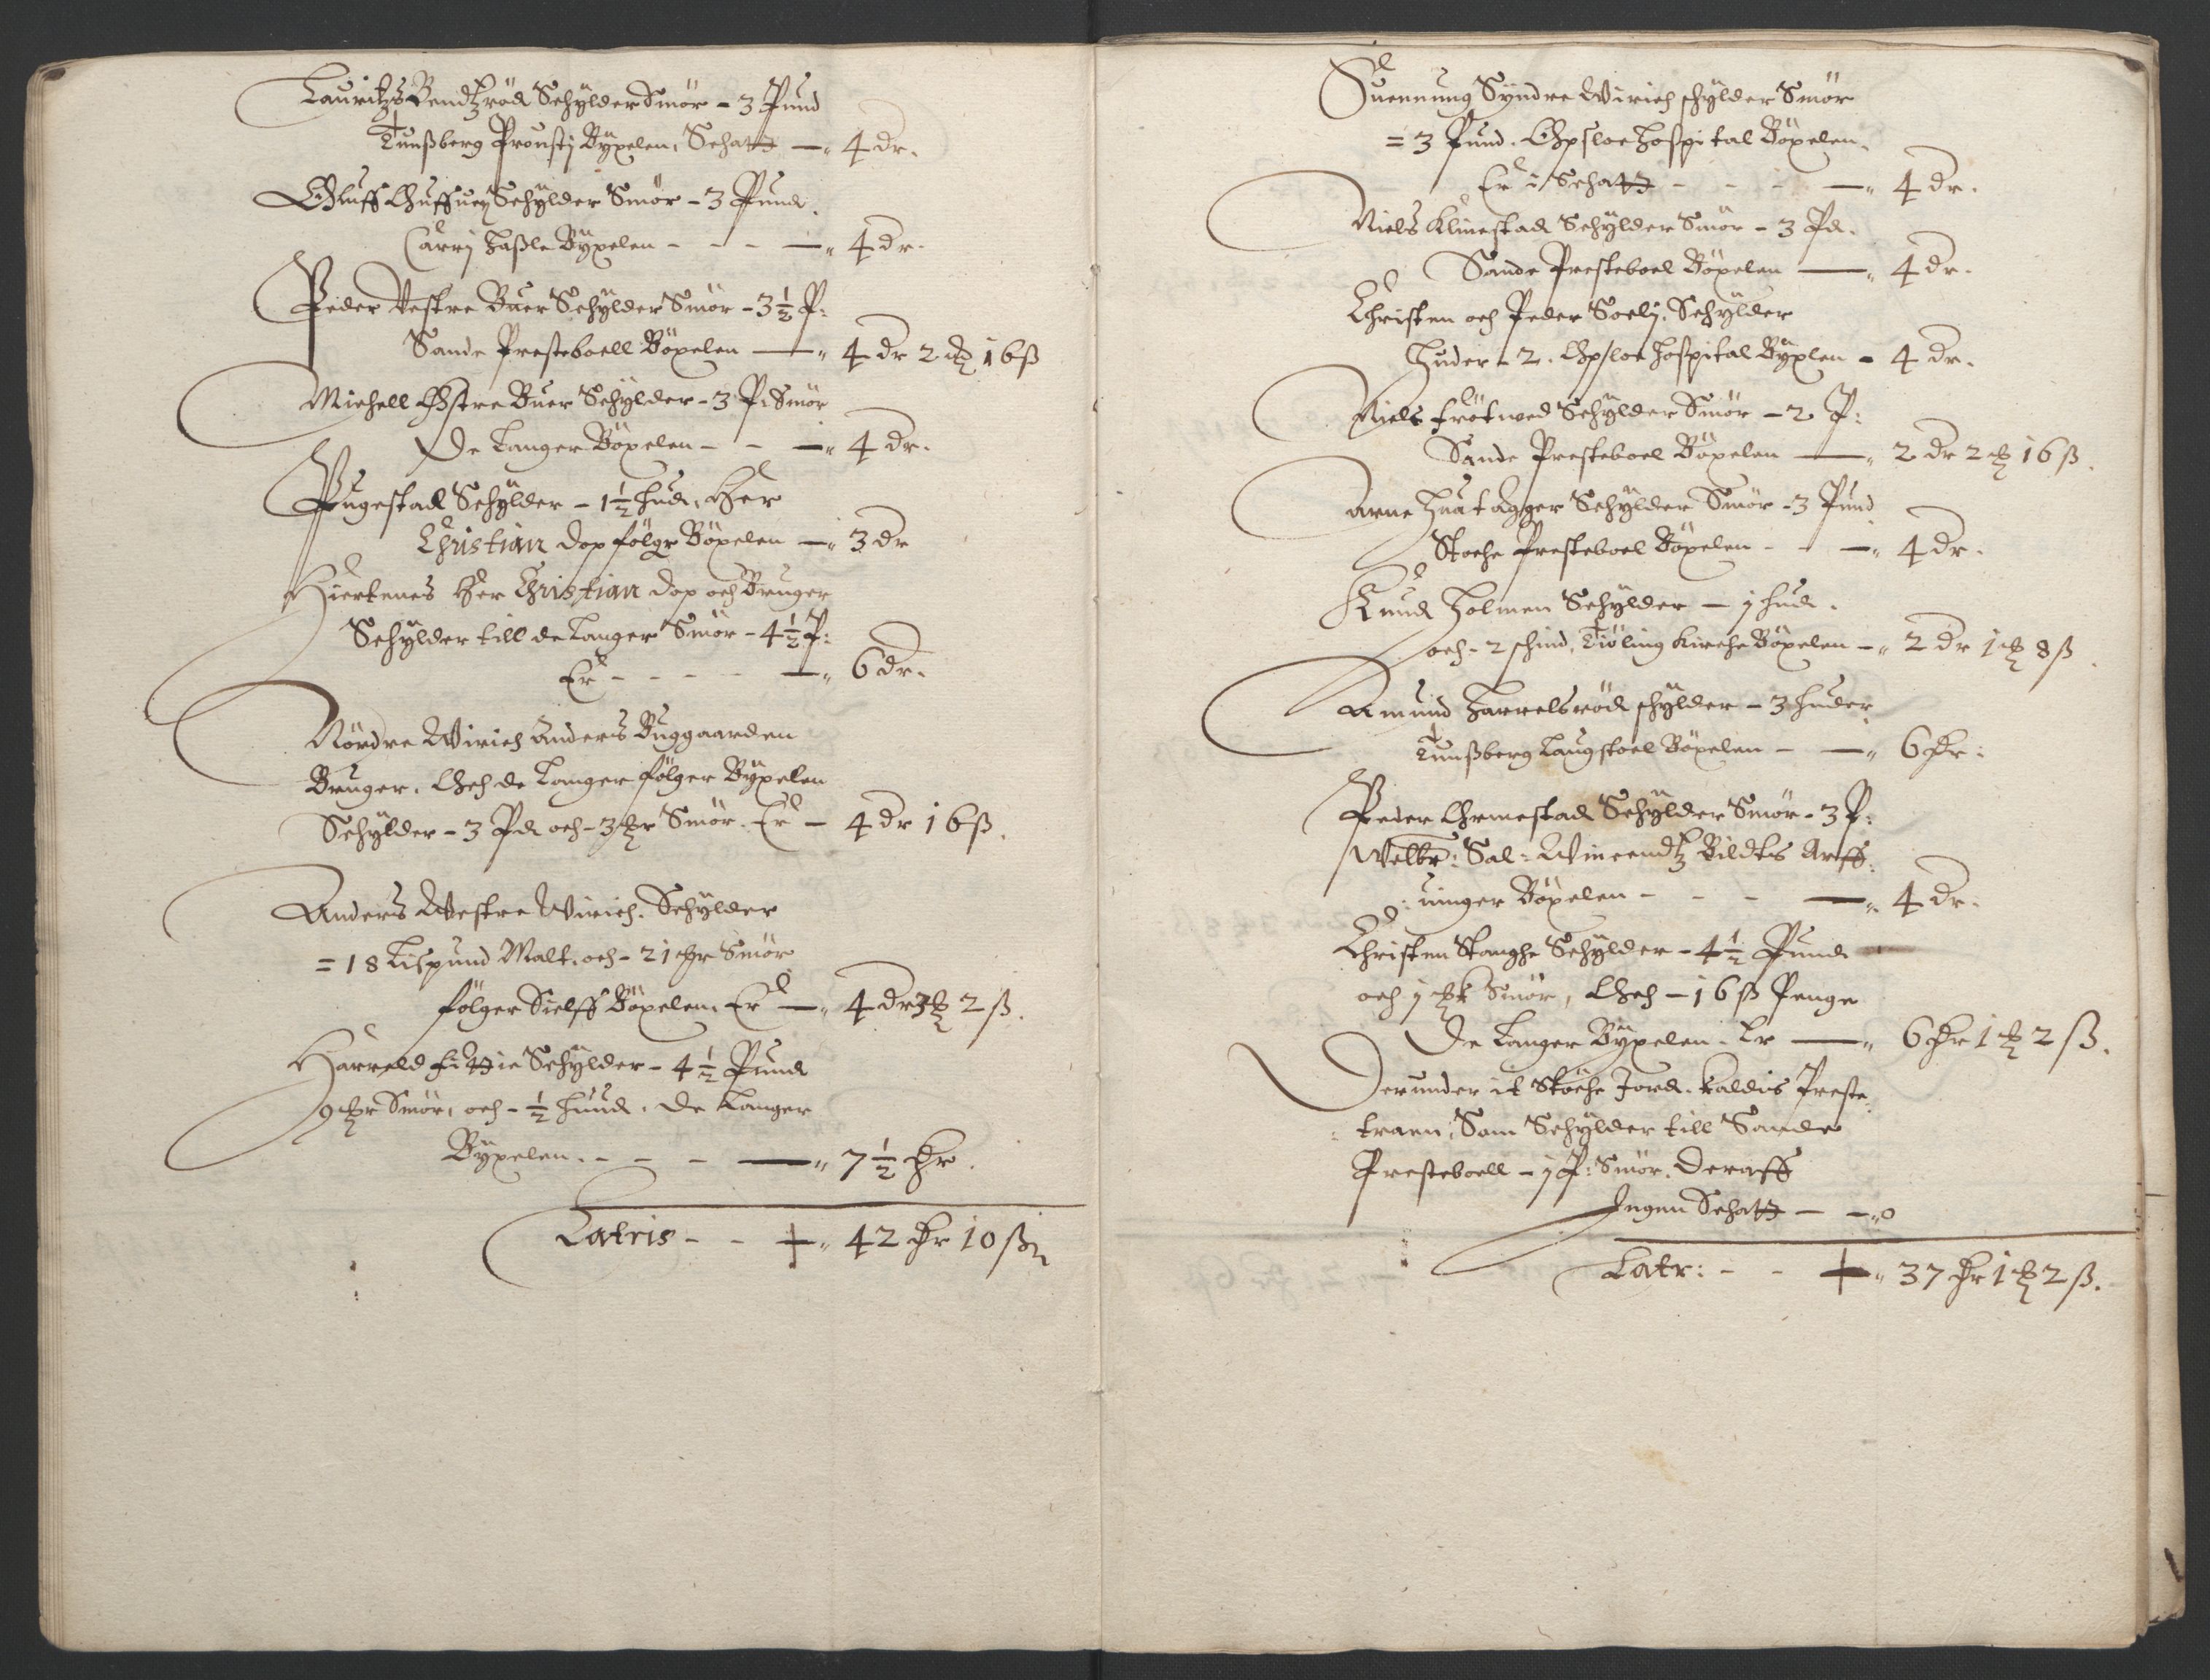 Lauritzs Bendtzröd Schÿlder Smör - 3 Pund
Tunßberg Proustj Bÿxelen, Schatt — 4 dr.
Oluff Huffuey Schÿlder Smör - 3 Pund.
Carrj Haßle Bÿxelen - - - — 4 dr.
Peder Vestre Buer Schÿlder Smör - 3½ P:
Sande Presteboell Böxelen — 4 dr 2 ℔ 16 ß
Michell Østre Buer Schÿlder - 3 P: Smör
De Langer Böxelen - - — 4 dr.
Pugestad Schÿlder - 1½ hud, Her
Christian dop följgr Böxelen — 3 dr
Hiertenes Her Christian dop och Bruger
Schÿlder till de Langer Smör - 4½ P:
Er - - - - — 6 dr.
Nördre Wirich Anders Buggaarden
Bruger. Och de Langer fölger Bÿxelen
Schÿlder - 3 Pd och - 3 ℔r Smör. Er — 4 dr 16 ß.
Anders Westre Wirich. Schÿlder
= 18 Lispund Malt. och - 21 ℔r Smör
fölger Sielff Böxelen. Er — 4 dr 3 ℔ 2 ß.
Harreld fittie Schÿlder - 4½ Pund
9 ℔r Smör, och - ½ Huud. De Langer
Bÿxelen. - - - — 7½ dr.
Latris - - — 42 dr 10 ß
Suennung Sÿndre Wirich schÿlder Smör
= 3 Pund. Opsloe Hospital Böxelen.
Er i Schatt - - - — 4 dr.
Niels Klinestad Schÿlder Smör - 3 Pd.
Sande Presteboel Böxelen — 4 dr.
Christen och Peder Soelj, Schÿlder
Huder - 2. Opsloe Hospital Bÿxlen - 4 dr.
Niels Frötwed Schÿlder Smör - 2 P:
Sande Presteboel Böxelen — 2 dr 2 ℔ 16 ß.
Arne Huatagger Schÿlder Smör - 3 Pund
Stoche Presteboel Böxelen - - — 4 dr.
Knud Holmen Schÿlder - j hud.
och - 2 schind, Tiöling Kirche Böxelen — 2 dr 1 ℔ 8 ß.
Amund Harrelsröd schÿlder - 3 huder
Tunßberg Laugstoel Böxelen - — 6 dr:
Peder Ormestad Schÿlder Smör - 3 P:
Welbr: Sal: Wincendtz Bildts Arff:
:uinger Böxelen - - - — 4 dr.
Christen Stanghe Schÿlder - 4½ Pund
och j ℔ Smör, Och - 16 ß Penge
De Langer Bÿxelen. Er — 6 dr 1 ℔ 2 ß.
Derunder it Stöche Jord. kaldis Preste:
:traen, Som Schÿlder till Sande
Presteboell - j P: Smör. Deraff
Ingen Schatt - — 0
Latr: - - — 37 dr 1 ℔ 2 ß.